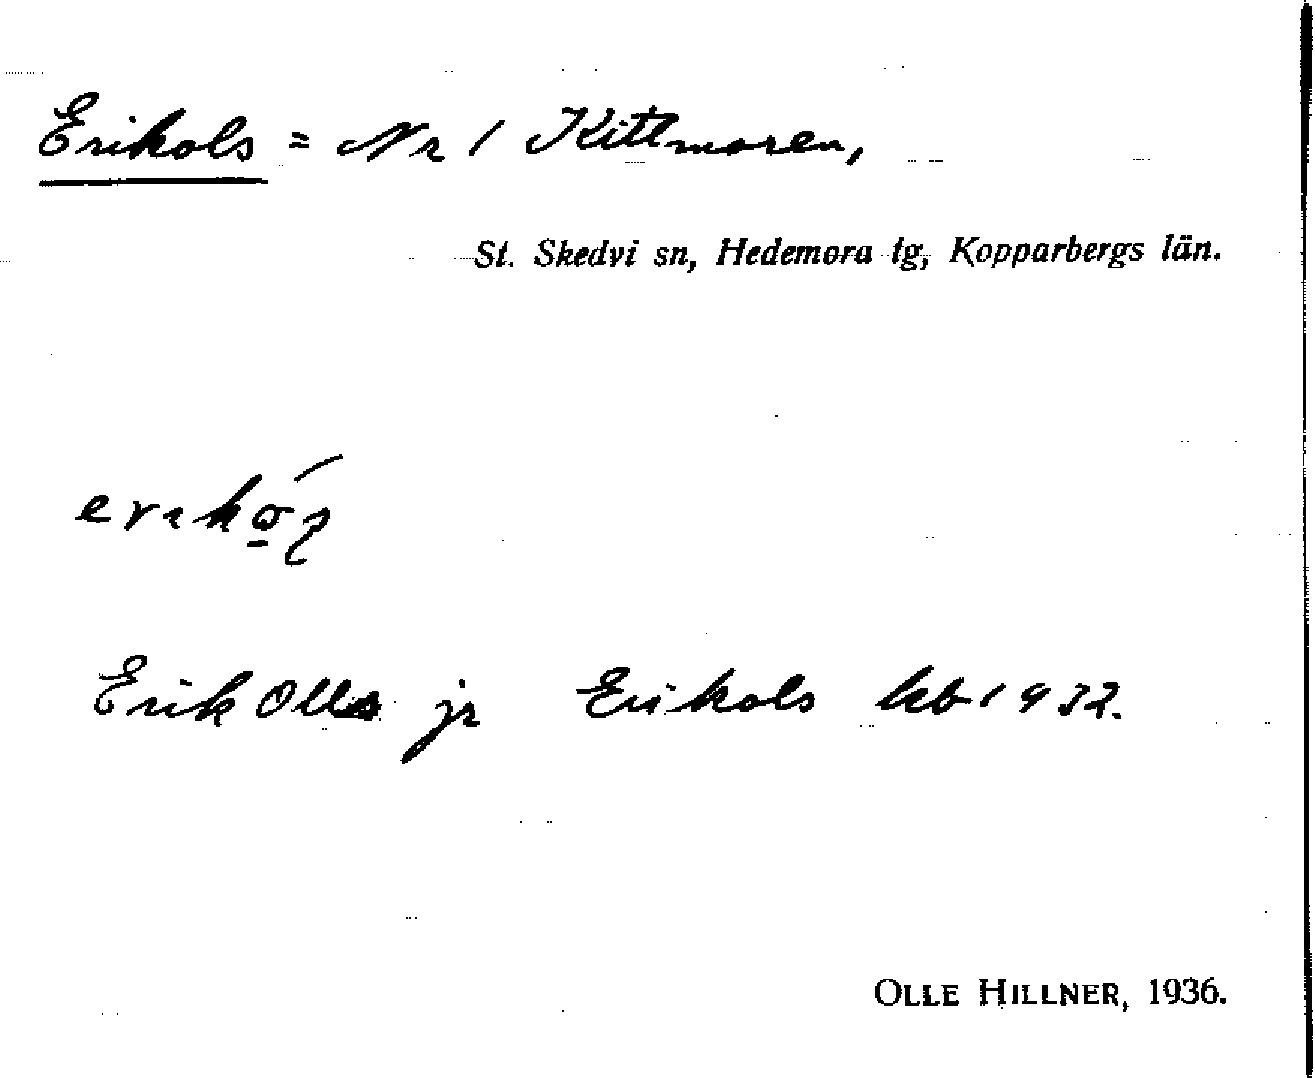 Erikols = Nr 1 Kittmoren,
St. Skedvi sn, Hedemora tg, Kopparbergs län.
Erik Olls jr Erikols kb 1932.
OLLE HILLNER, 1936.